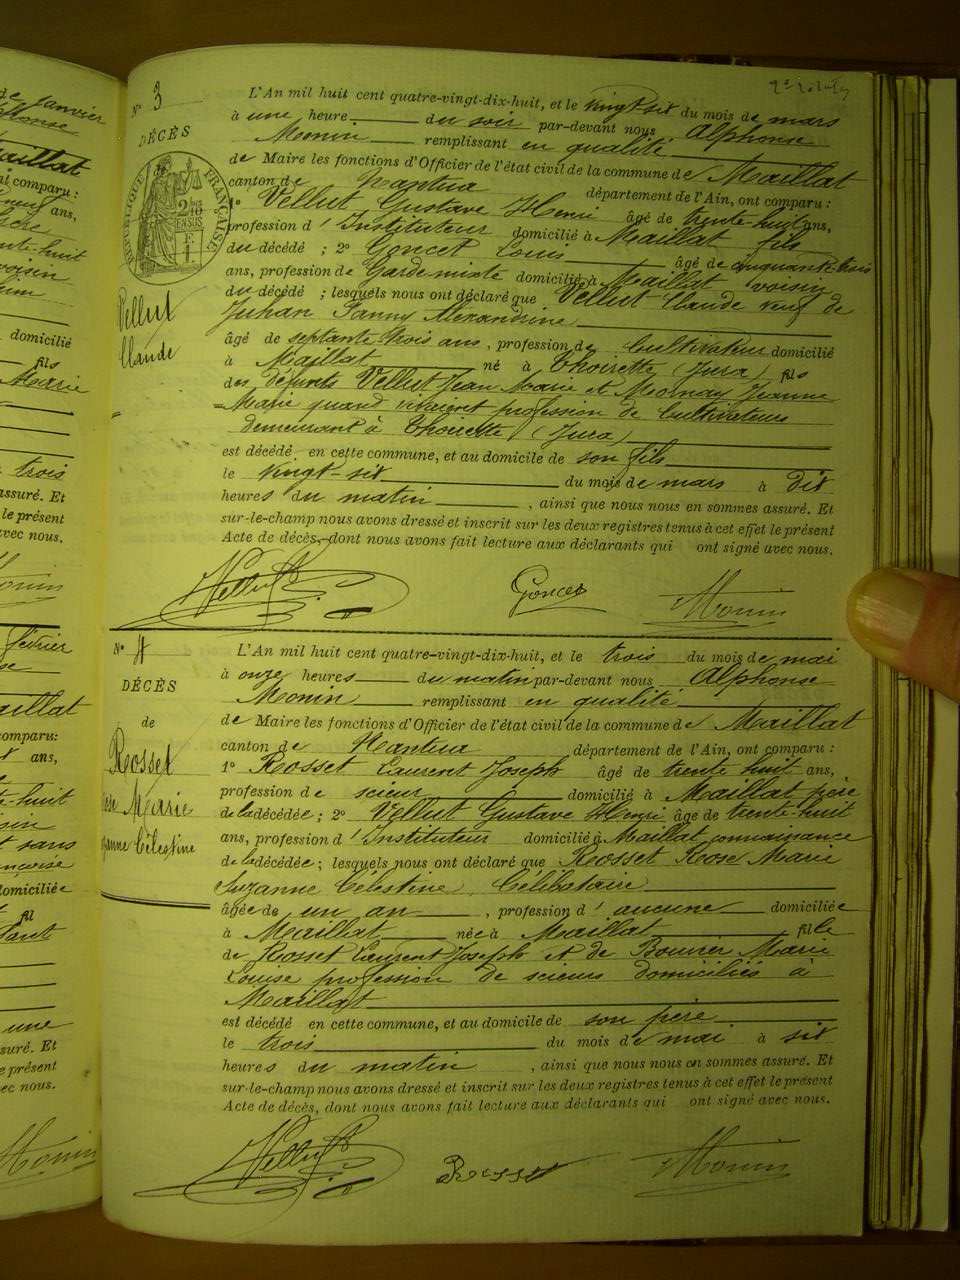 N° 3
DÉCÈS
RÉPUBLIQUE FRANÇAISE
Vellut
Claude
L'An mil huit cent quatre-vingt-dix-huit, et le vingt-six du mois de mars
à une heure du soir par-devant nous Alphonse
Monin remplissant en qualité
de Maire les fonctions d'Officier de l'état civil de la commune de Maillat
canton de Nantua département de l'Ain, ont comparu :
1° Vellut Gustave Henri âgé de trente-huit ans,
profession d'Instituteur domicilié à Maillat fils
du décédé ; 2° Goncet Louis âgé de cinquante-trois
ans, profession de Garde-mixte domicilié à Maillat voisin
du décédé ; lesquels nous ont déclaré que Vellut Claude veuf de
Juhan Fanny Alexandrine
âgé de septante trois ans, profession de Cultivateur domicilié
à Maillat né à Thoirette (Jura) fils
des défunts Vellut Jean Marie et Mornay Jeanne
Marie quand vivaient profession de Cultivateurs
demeurant à Thoirette (Jura)
est décédé en cette commune, et au domicile de son fils
le vingt-six du mois de mars à dix
heures du matin, ainsi que nous nous en sommes assuré. Et
sur-le-champ nous avons dressé et inscrit sur les deux registres tenus à cet effet le présent
Acte de décès, dont nous avons fait lecture aux déclarants qui ont signé avec nous.
Vellut Goncet Monin
N° 4
DÉCÈS
de
Rosset
Marie
Célestine
L'An mil huit cent quatre-vingt-dix-huit, et le trois du mois de mai
à onze heures du matin par-devant nous Alphonse
Monin remplissant en qualité
de Maire les fonctions d'Officier de l'état civil de la commune de Maillat
canton de Nantua département de l'Ain, ont comparu :
1° Rosset Laurent Joseph âgé de trente huit ans,
profession de scieur domicilié à Maillat père
de la décédée ; 2° Vellut Gustave Henri âgé de trente-huit
ans, profession d'Instituteur domicilié à Maillat connaissance
de la décédée ; lesquels nous ont déclaré que Rosset Rose Marie
Suzanne Célestine, Célibataire
âgée de un an, profession d'aucune domiciliée
à Maillat née à Maillat fille
de Rosset Laurent Joseph et de Bouvier Marie
Louise profession de scieurs domiciliés à
Maillat
est décédé en cette commune, et au domicile de son père
le trois du mois de mai à six
heures du matin, ainsi que nous nous en sommes assuré. Et
sur-le-champ nous avons dressé et inscrit sur les deux registres tenus à cet effet le présent
Acte de décès, dont nous avons fait lecture aux déclarants qui ont signé avec nous.
Vellut Rosset Monin